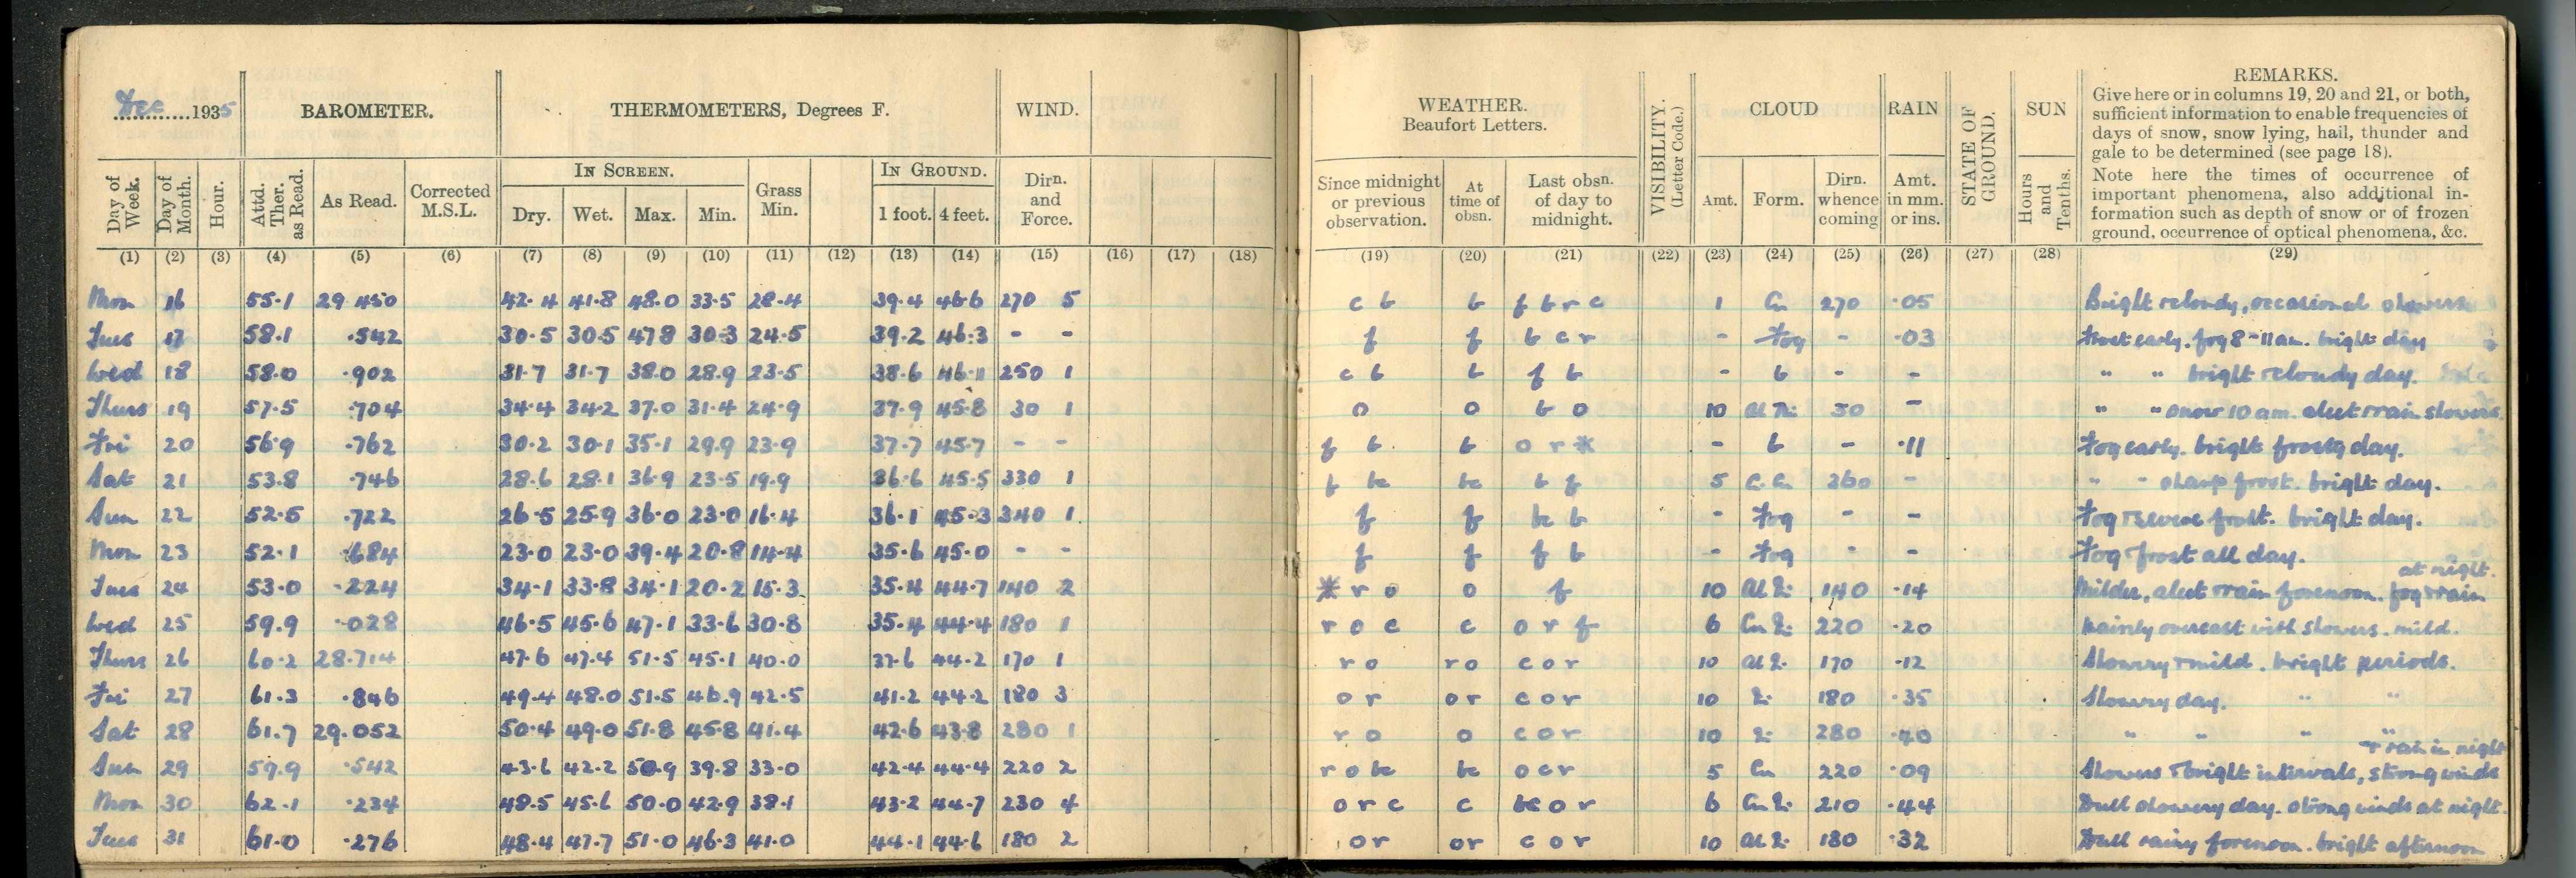 Dec 1935 BAROMETER. THERMOMETERS, Degrees F. WIND. WEATHER. Beaufort Letters. VISIBILITY. (Letter Code.) CLOUD RAIN STATE OF GROUND. SUN REMARKS.
Give here or in columns 19, 20 and 21, or both,
sufficient information to enable frequencies of
days of snow, snow lying, hail, thunder and
gale to be determined (see page 18).
Note here the times of occurrence of
important phenomena, also additional in-
formation such as depth of snow or of frozen
ground, occurrence of optical phenomena, &c.
IN SCREEN. IN GROUND.
Day of Week. Day of Month. Hour. Attd. Ther. as Read. As Read. Corrected M.S.L. Dry. Wet. Max. Min. Grass Min. 1 foot. 4 feet. Dirn. and Force. Since midnight or previous observation. At time of obsn. Last obsn. of day to midnight. Amt. Form. Dirn. whence coming Amt. in mm. or ins. Hours and Tenths.
(1) (2) (3) (4) (5) (6) (7) (8) (9) (10) (11) (12) (13) (14) (15) (16) (17) (18) (19) (20) (21) (22) (23) (24) (25) (26) (27) (28) (29)
Mon 16 55.1 29.450 42.4 41.8 48.0 33.5 28.4 39.4 46.6 270 5 c b b f b r c 1 Cu 270 .05 Bright + cloudy, occasional showers
Tues 17 58.1 .542 30.5 30.5 47.8 30.3 24.5 39.2 46.3 - - f f b c r - Fog - .03 Frost early. fog 8-11 am. bright day
Wed 18 58.0 .902 31.7 31.7 38.0 28.9 23.5 38.6 46.1 250 1 c b b f b - b - - " " bright + cloudy day.
Thurs 19 57.5 .704 34.4 34.2 37.0 31.4 24.9 37.9 45.8 30 1 o o b o 10 30 - " " snow 10 am. sleet + rain showers.
Fri 20 56.9 .762 30.2 30.1 35.1 29.9 23.9 37.7 45.7 - - f b b o r * - b - .11 Fog early. bright frosty day.
Sat 21 53.8 .746 28.6 28.1 36.9 23.5 19.9 36.6 45.5 330 1 f bc bc b f 5 360 - " - sharp frost. bright day.
Sun 22 52.5 .722 26.5 25.9 36.0 23.0 16.4 36.1 45.3 340 1 f f bc b - Fog - - Fog + severe frost. bright day.
Mon 23 52.1 .684 23.0 23.0 39.4 20.8 14.4 35.6 45.0 - - f f f b - Fog - - Fog + frost all day.
at night.
Tues 24 53.0 .224 34.1 33.8 34.1 20.2 15.3 35.4 44.7 140 2 * r o o f 10 140 .14 Milder, sleet + rain forenoon. fog + rain
Wed 25 59.9 .028 46.5 45.6 47.1 33.6 30.8 35.4 44.4 180 1 r o c c o r f 6 220 .20 Mainly overcast with showers. mild.
Thurs 26 60.2 28.714 47.6 47.4 51.5 45.1 40.0 37.6 44.2 170 1 r o r o c o r 10 170 .12 Showery + mild. bright periods.
Fri 27 61.3 .846 49.4 48.0 51.5 46.9 42.5 41.2 44.2 180 3 o r o r c o r 10 180 .35 Showery day. " "
Sat 28 61.7 29.052 50.4 49.0 51.8 45.8 41.4 42.6 43.8 280 1 r o o c o r 10 280 .40 " " " "
+ rain in night
Sun 29 59.9 .542 43.6 42.2 50.9 39.8 33.0 42.4 44.4 220 2 r o bc bc o c r 5 Cu 220 .09 Showers + bright intervals, strong winds
Mon 30 62.1 .234 48.5 45.6 50.0 42.9 38.1 43.2 44.7 230 4 o r c c bc o r 6 210 .44 Dull showery day. strong winds at night.
Tues 31 61.0 .276 48.4 47.7 51.0 46.3 41.0 44.1 44.6 180 2 o r o r c o r 10 180 .32 Dull rainy forenoon. bright afternoon